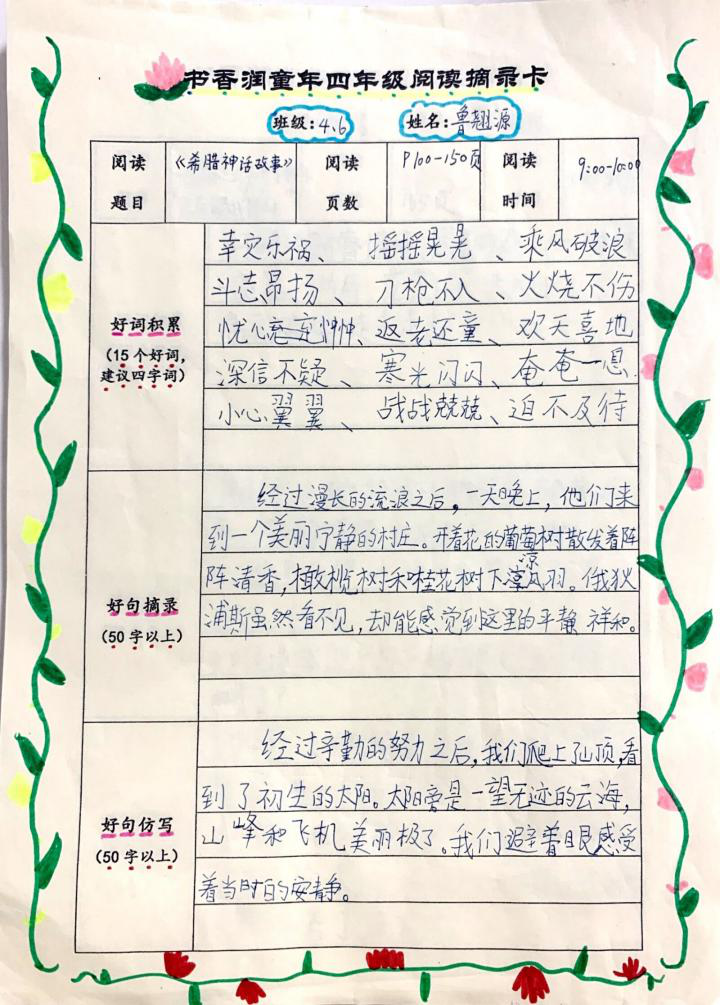 书香润童年四年级阅读摘录卡
班级:4.6 姓名:鲁翘源
阅读题目 《希腊神话故事》 阅读页数 P100-150页 阅读时间 9:00-10:00
好词积累
(15个好词,
建议四字词)
幸灾乐祸、摇摇晃晃、乘风破浪
斗志昂扬、刀枪不入、火烧不伤
忧心忡忡、返老还童、欢天喜地
深信不疑、寒光闪闪、奄奄一息
小心翼翼、战战兢兢、迫不及待
好句摘录
(50字以上)
经过漫长的流浪之后,一天晚上,他们来
到一个美丽宁静的村庄。开着花的葡萄树散发着阵
阵清香,橄榄树和桂花树下凉风习。俄狄
浦斯虽然看不见,却能感觉到这里的平静祥和。
好句仿写
(50字以上)
经过辛勤的努力之后,我们爬上了山顶,看
到了初生的太阳。太阳旁是一望无迹的云海,
山峰和飞机美丽极了。我们避着眼感受
着当时的安静。